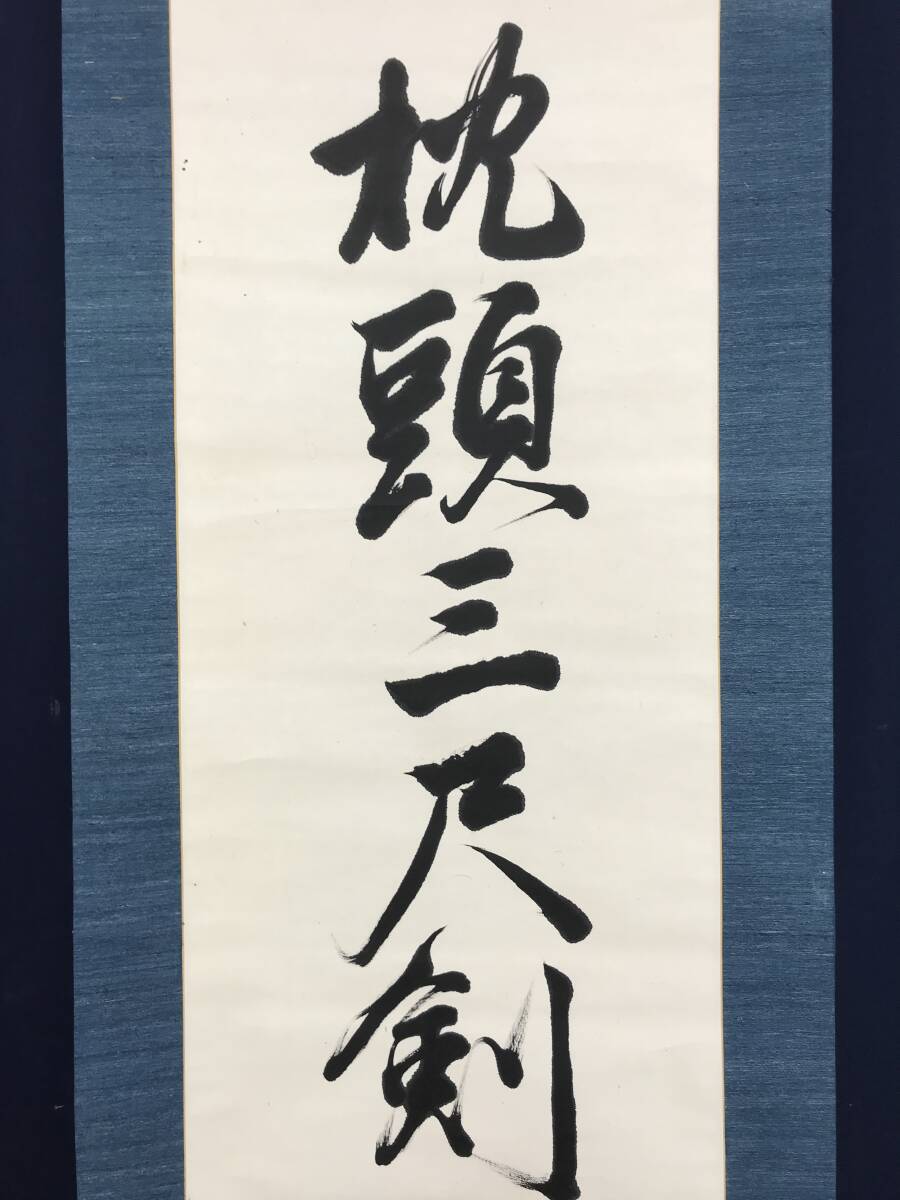 枕頭三尺剣